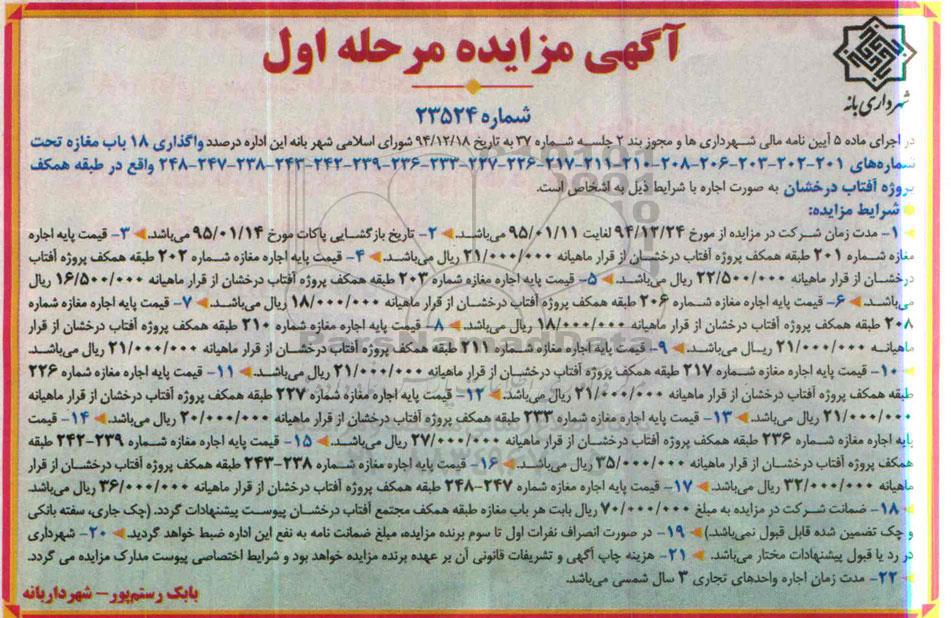 آگهی مزایده مرحله اول
شهرداری بانه
شماره ۲۳۵۲۴
در اجرای ماده ۵ آیین نامه مالی شهرداری ها و مجوز بند ۲ جلسه شماره ۳۷ به تاریخ ۹۴/۱۲/۱۸ شورای اسلامی شهر بانه این اداره درصدد واگذاری ۱۸ باب مغازه تحت
شماره‌های ۲۰۱-۲۰۲-۲۰۳-۲۰۶-۲۰۸-۲۱۰-۲۱۱-۲۱۷-۲۲۶-۲۲۷-۲۳۳-۲۳۶-۲۳۹-۲۴۲-۲۴۳-۲۳۸-۲۴۷-۲۴۸ واقع در طبقه همکف
پروژه آفتاب درخشان به صورت اجاره با شرایط ذیل به اشخاص است.
شرایط مزایده:
۱- مدت زمان شرکت در مزایده از مورخ ۹۴/۱۲/۲۴ لغایت ۹۵/۰۱/۱۱ می‌باشد. ۲- تاریخ بازگشایی پاکات مورخ ۹۵/۰۱/۱۴ می‌باشد. ۳- قیمت پایه اجاره
مغازه شماره ۲۰۱ طبقه همکف پروژه آفتاب درخشان از قرار ماهیانه ۲۱/۰۰۰/۰۰۰ ریال می‌باشد. ۴- قیمت پایه اجاره مغازه شماره ۲۰۲ طبقه همکف پروژه آفتاب
درخشان از قرار ماهیانه ۲۲/۵۰۰/۰۰۰ ریال می‌باشد. ۵- قیمت پایه اجاره مغازه شماره ۲۰۳ طبقه همکف پروژه آفتاب درخشان از قرار ماهیانه ۱۶/۵۰۰/۰۰۰ ریال
می‌باشد. ۶- قیمت پایه اجاره مغازه شماره ۲۰۶ طبقه همکف پروژه آفتاب درخشان از قرار ماهیانه ۱۸/۰۰۰/۰۰۰ ریال می‌باشد. ۷- قیمت پایه اجاره مغازه شماره
۲۰۸ طبقه همکف پروژه آفتاب درخشان از قرار ماهیانه ۱۸/۰۰۰/۰۰۰ ریال می‌باشد. ۸- قیمت پایه اجاره مغازه شماره ۲۱۰ طبقه همکف پروژه آفتاب درخشان از قرار
ماهیانه ۲۱/۰۰۰/۰۰۰ ریال می‌باشد. ۹- قیمت پایه اجاره مغازه شماره ۲۱۱ طبقه همکف پروژه آفتاب درخشان از قرار ماهیانه ۲۱/۰۰۰/۰۰۰ ریال می‌باشد.
۱۰- قیمت پایه اجاره مغازه شماره ۲۱۷ طبقه همکف پروژه آفتاب درخشان از قرار ماهیانه ۲۱/۰۰۰/۰۰۰ ریال می‌باشد. ۱۱- قیمت پایه اجاره مغازه شماره ۲۲۶
طبقه همکف پروژه آفتاب درخشان از قرار ماهیانه ۲۱/۰۰۰/۰۰۰ ریال می‌باشد. ۱۲- قیمت پایه اجاره مغازه شماره ۲۲۷ طبقه همکف پروژه آفتاب درخشان از قرار ماهیانه
۲۱/۰۰۰/۰۰۰ ریال می‌باشد. ۱۳- قیمت پایه اجاره مغازه شماره ۲۳۳ طبقه همکف پروژه آفتاب درخشان از قرار ماهیانه ۲۰/۰۰۰/۰۰۰ ریال می‌باشد. ۱۴- قیمت
پایه اجاره مغازه شماره ۲۳۶ طبقه همکف پروژه آفتاب درخشان از قرار ماهیانه ۲۷/۰۰۰/۰۰۰ ریال می‌باشد. ۱۵- قیمت پایه اجاره مغازه شماره ۲۳۹-۲۴۲ طبقه
همکف پروژه آفتاب درخشان از قرار ماهیانه ۳۵/۰۰۰/۰۰۰ ریال می‌باشد. ۱۶- قیمت پایه اجاره مغازه شماره ۲۳۸-۲۴۳ طبقه همکف پروژه آفتاب درخشان از قرار
ماهیانه ۳۲/۰۰۰/۰۰۰ ریال می‌باشد. ۱۷- قیمت پایه اجاره مغازه شماره ۲۴۷-۲۴۸ طبقه همکف پروژه آفتاب درخشان از قرار ماهیانه ۳۶/۰۰۰/۰۰۰ ریال می‌باشد.
۱۸- ضمانت شرکت در مزایده به مبلغ ۷۰/۰۰۰/۰۰۰ ریال بابت هر باب مغازه طبقه همکف مجتمع آفتاب درخشان پیوست پیشنهادات گردد. (چک جاری، سفته بانکی
و چک تضمین شده قابل قبول نمی‌باشد) ۱۹- در صورت انصراف نفرات اول تا سوم برنده مزایده، مبلغ ضمانت نامه به نفع این اداره ضبط خواهد گردید. ۲۰- شهرداری
در رد یا قبول پیشنهادات مختار می‌باشد. ۲۱- هزینه چاپ آگهی و تشریفات قانونی آن بر عهده برنده مزایده خواهد بود و شرایط اختصاصی پیوست مدارک مزایده می گردد.
۲۲- مدت زمان اجاره واحدهای تجاری ۳ سال شمسی می‌باشد.
بابک رستم‌پور – شهردار بانه
ParsNamadData